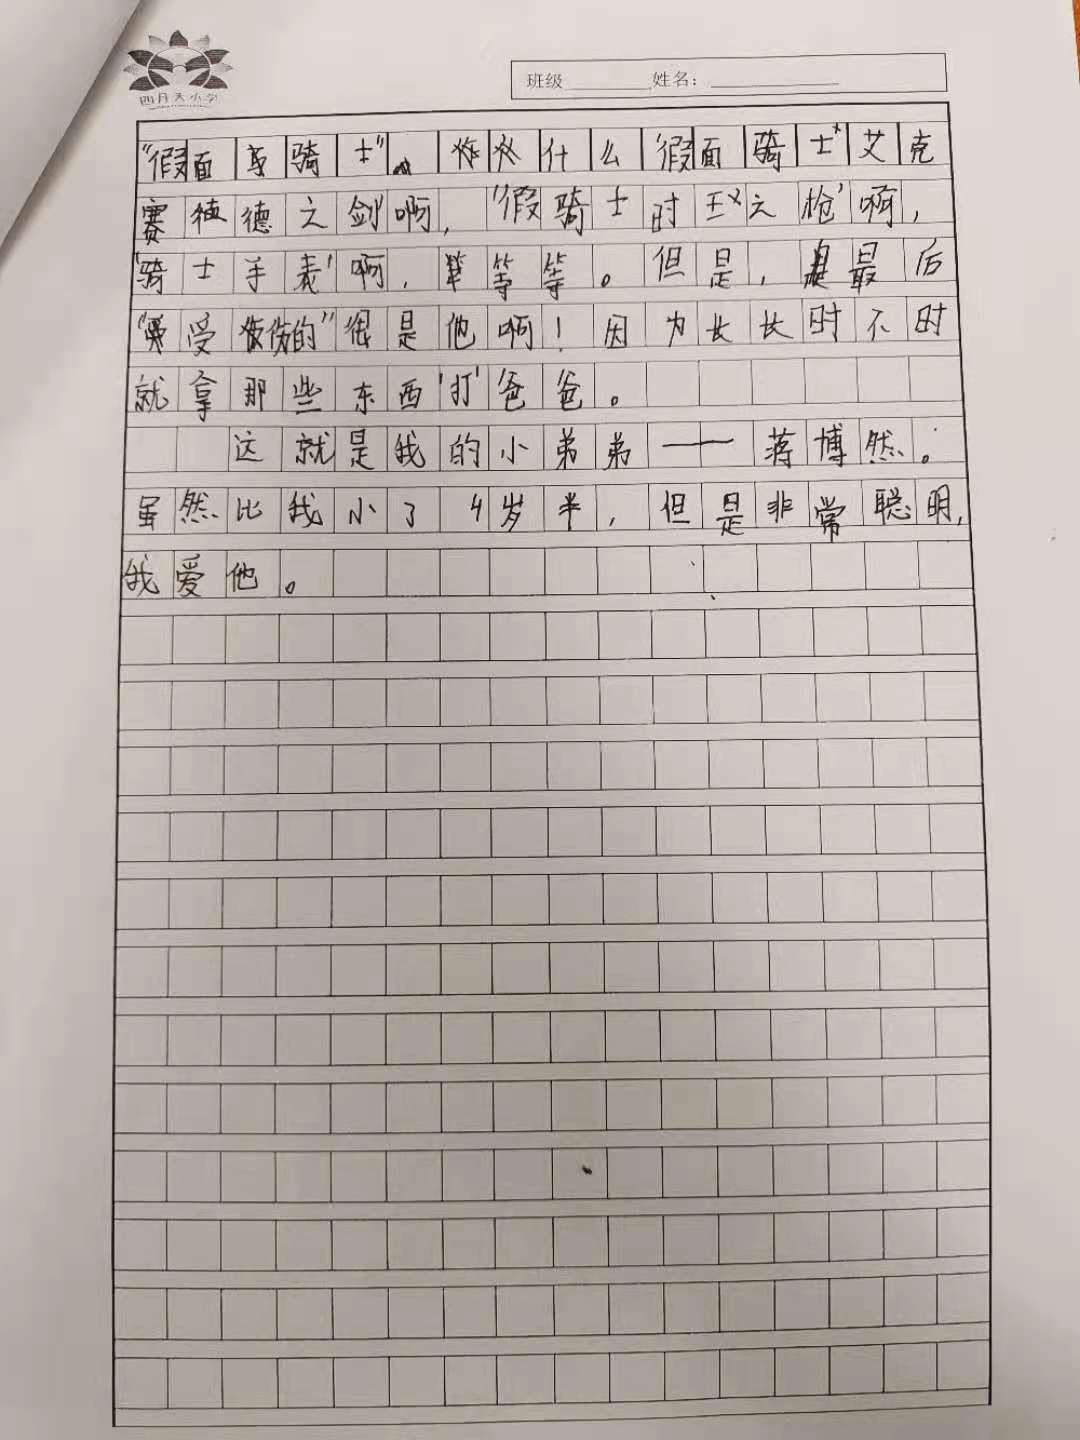 四月天小学
班级________姓名：____________
“假面骑士”。 什么“假面骑士×艾克
赛德之剑”啊，“假骑士时王×之枪”啊，
“骑士手表”啊，等等。但是，最后
“受伤的”很是他啊！因为长长时不时
就拿那些东西‘打’爸爸。
这就是我的小弟弟——蒋博然。
虽然比我小了4岁半，但是非常聪明，
我爱他。